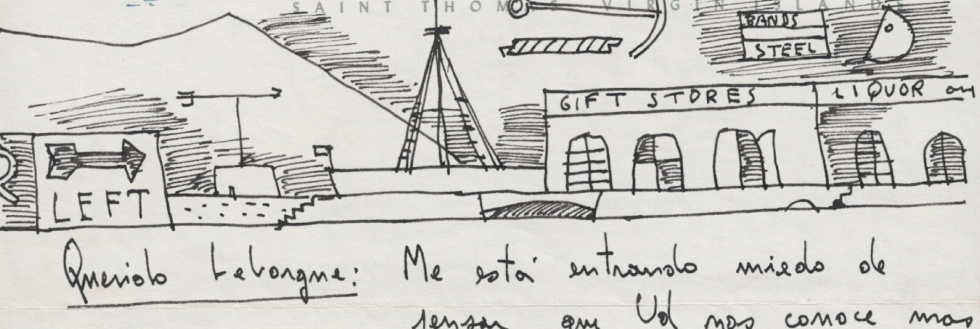 SAINT THOMAS, VIRGIN ISLANDS
BANDS
STEEL
GIFT STORES
LIQUOR
LEFT
Querido Leborgne: Me está entrando miedo de
pensar que Ud nos conoce mas